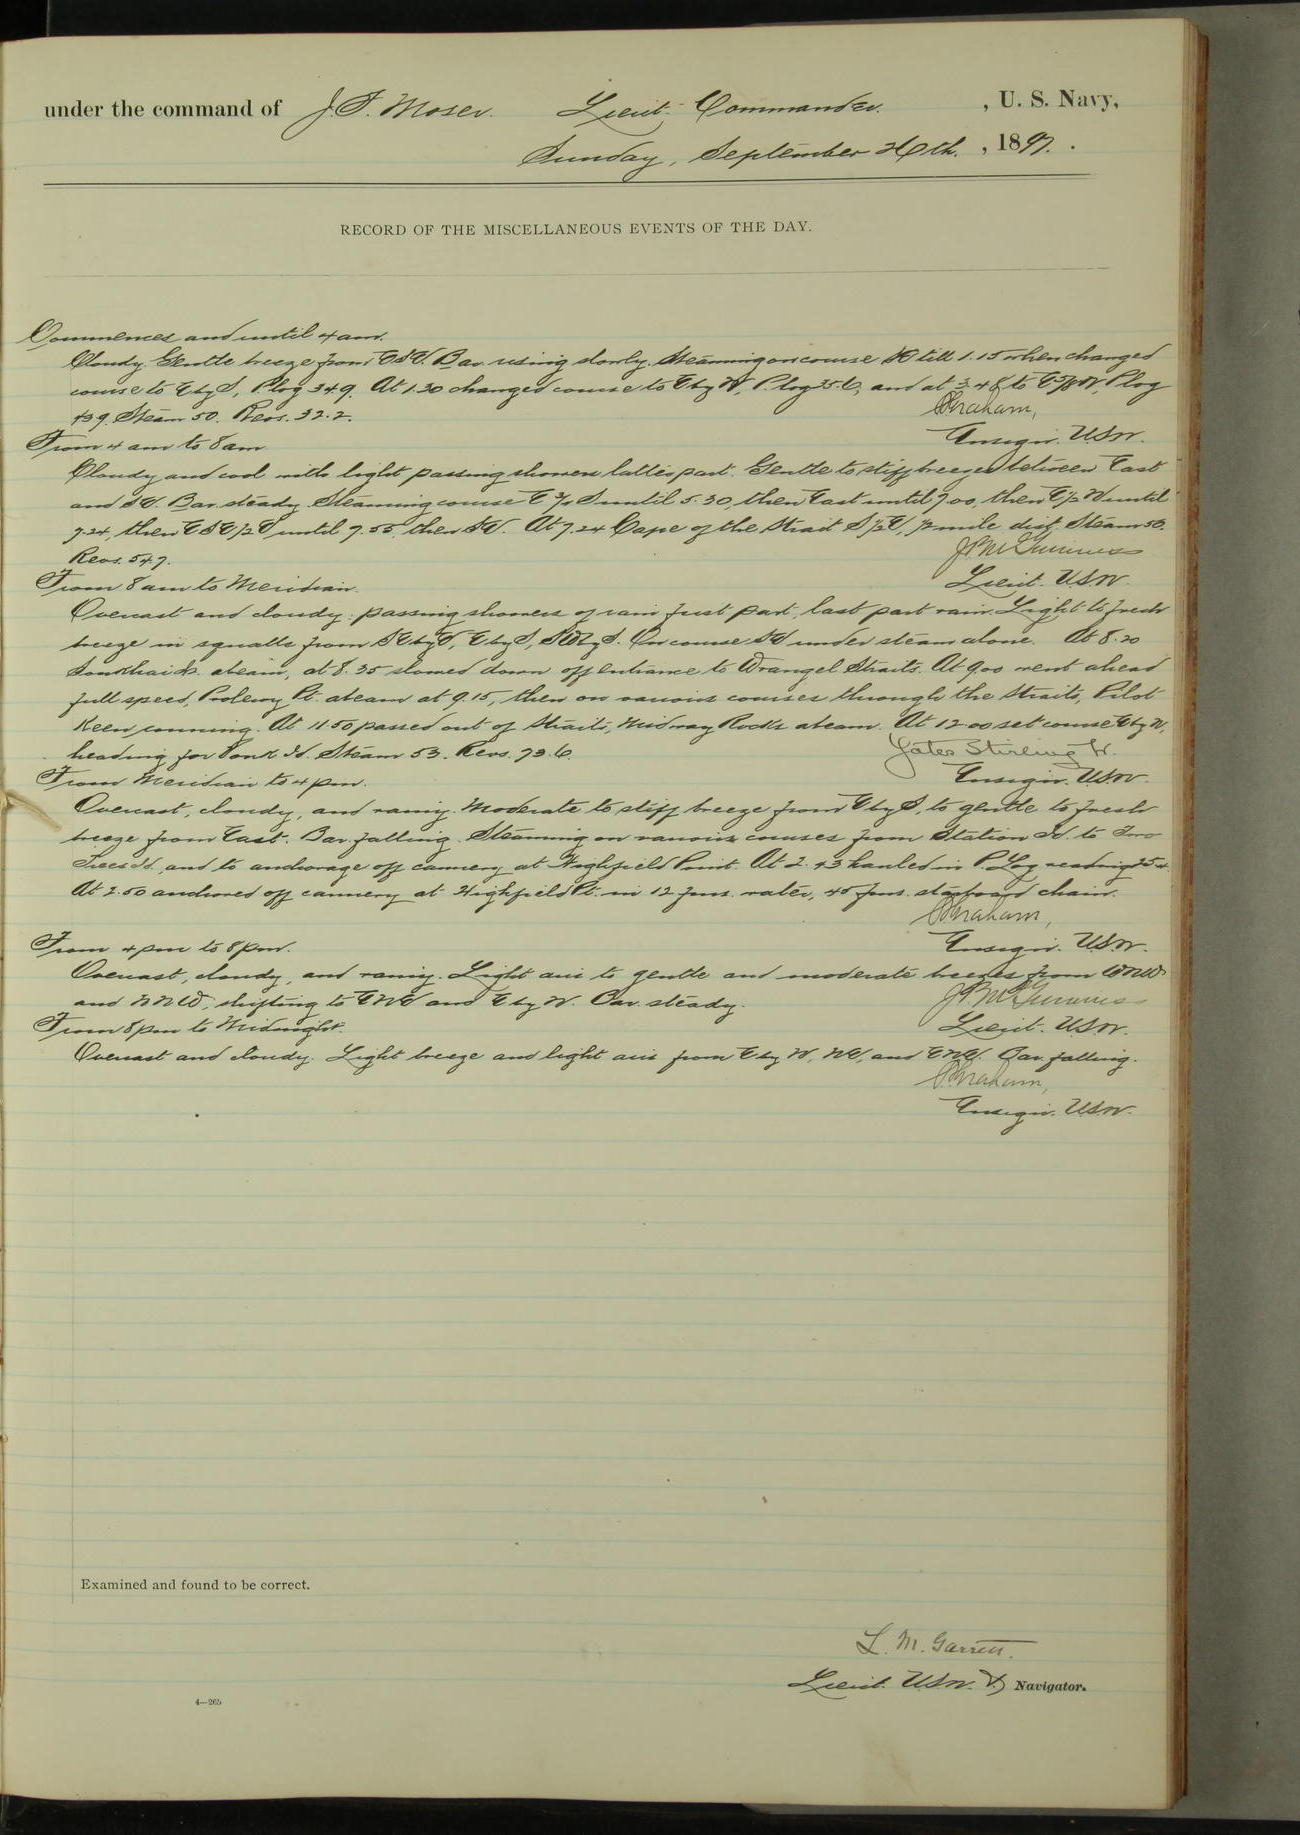 under the command of J. F. Moser. Lieut. Commander. , U. S. Navy,
Sunday, September 26th. , 1897.
RECORD OF THE MISCELLANEOUS EVENTS OF THE DAY.
Commences and until 4 am.
Cloudy. Gentle breeze from ESE. Bar. rising slowly. Steaming on course SE till 1.15 when changed
course to E by S, P. log 34.9. At 1.30 changed course to E by N, P. log and at to P. log
43.9. Steam 50. Revs. 32.2.
Ensign. USN.
From 4 am to 8 am
Cloudy and cool with light passing showers latter part. Gentle to stiff breezes between East
and SE. Bar. steady. Steaming course E 3/4 S until 5.30, then East until 7.00, then E 1/2 N until
7.24, then ESE 1/2 E until 7.55, then SE. At 7.24 Cape of the Strait S 1/2 E, 1/2 mile dist. Steam 50.
Revs. 54.7.
Lieut. USN.
From 8 am to Meridian.
Overcast and cloudy. passing showers of rain first part, last part rain. Light to fresh
breeze in squalls from SE by E, E by S, SW by S. On course SE under steam alone. At 8.20
abeam, at 8.35 slowed down off entrance to Wrangel Straits. At 9.00 went ahead
full speed, Prolewy Pt. abeam at 9.15, then on various courses through the Straits, Pilot
Keen conning. At 11.50 passed out of Straits, Midway Rocks abeam. At 12.00 set course E by N,
heading for Vank Id. Steam 53. Revs. 73.6.
Yates Stirling Jr.
Ensign. USN.
From Meridian to 4 pm.
Overcast, cloudy, and rainy. Moderate to stiff breeze from E by S, to gentle to fresh
breeze from East. Bar. falling. Steaming on various courses from Station Id. to Two
Trees Id., and to anchorage off cannery at Highfield Point. At 2.43 hauled in P. Log reading
At 2.50 anchored off cannery at Highfield Pt. in 12 fms. water, 45 fms. starboard chain.
Ensign. U.S.N.
From 4 pm to 8 pm.
Overcast, cloudy, and rainy. Light airs to gentle and moderate breezes from WNW
and NNW, shifting to ENE and E by N. Bar. steady.
Lieut. USN.
From 8 pm to Midnight.
Overcast and cloudy. Light breeze and light airs from E by N, NE, and ENE. Bar. falling.
Ensign. USN.
Examined and found to be correct.
L. M. Garrett.
Lieut. USN. Navigator.
4—265